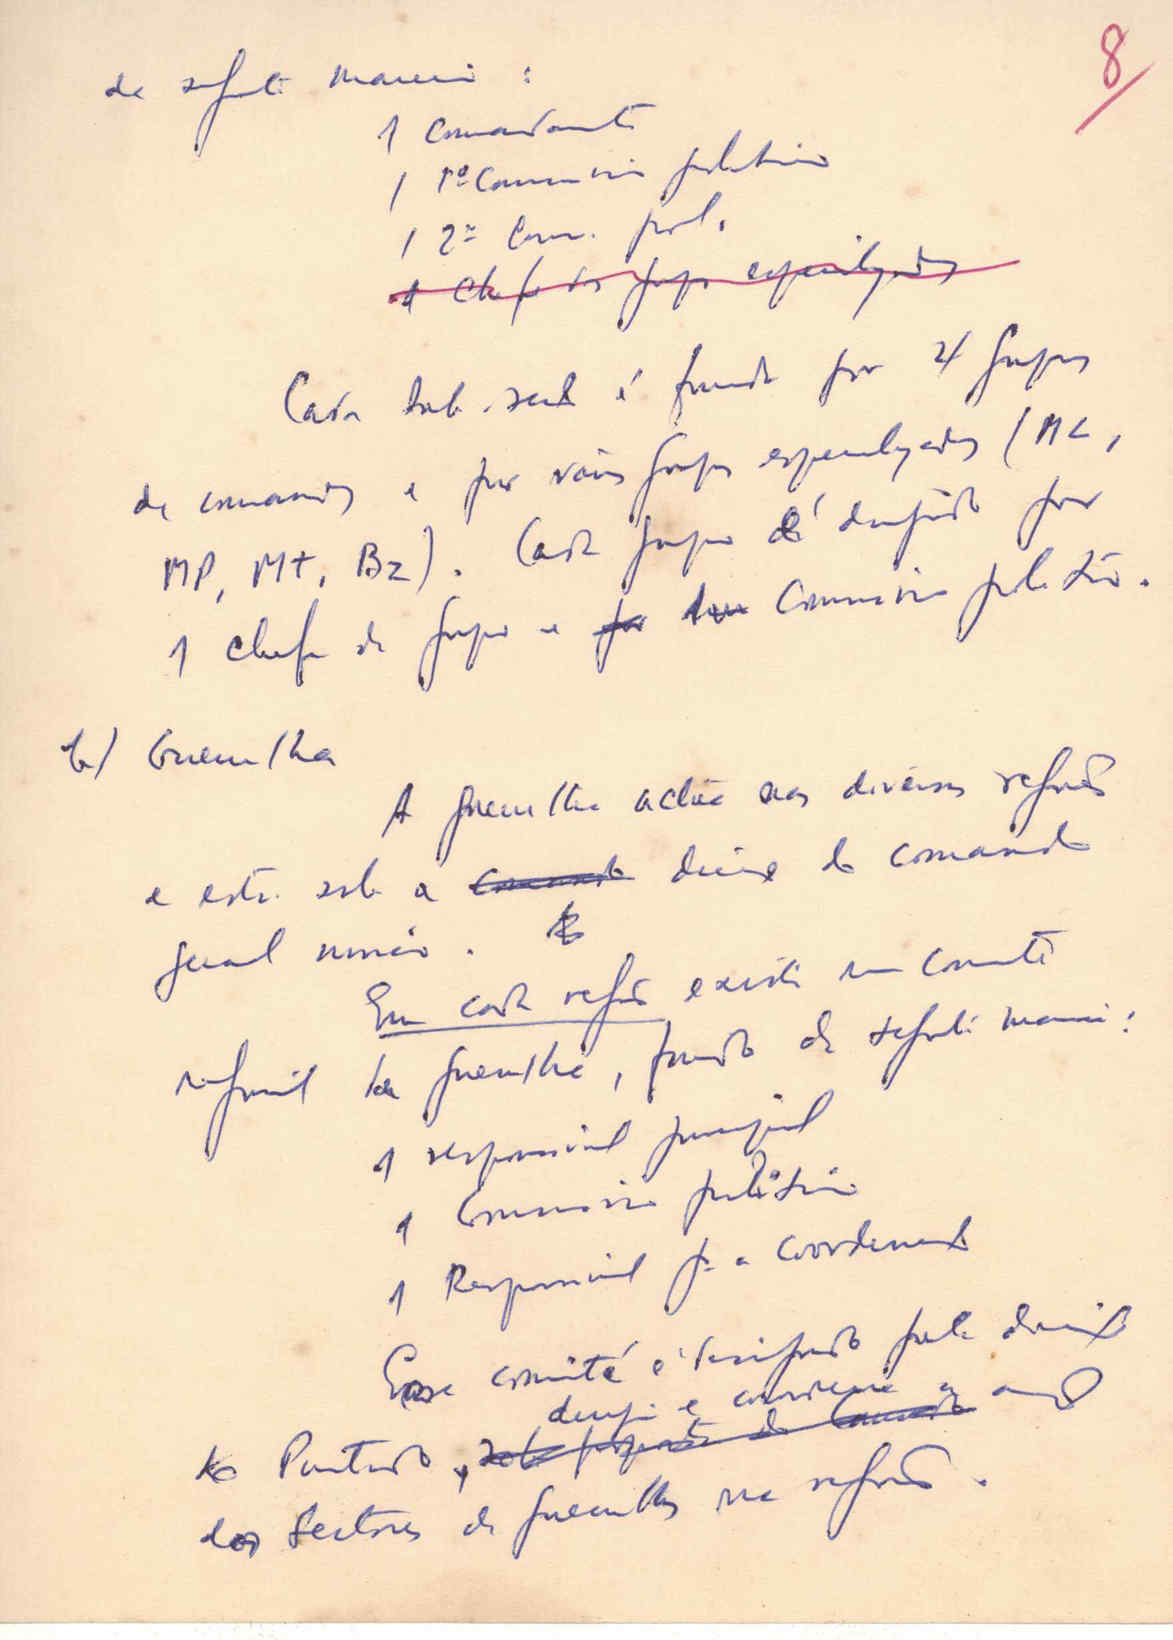 8
da seguinte maneira :
1 Comandante
1 1º Comissário político
1 2º Com. pol.
1 Chefe dos grupos especializados
Cada sub-sect é formado por 4 grupos
de comandos e por vários grupos especializados (ML,
MP, Mt, Bz). Cada grupo é dirigido por
1 chefe de grupo e por 1 um Comissário político.
b) Guerrilha
A guerrilha actua nas diversas regiões
e está sob a Comando direcção do comando
geral único.
Em cada região existe um comité
regional da guerrilha, formado da seguinte maneira:
1 responsável principal
1 Comissário político
1 Responsável p. a coordenação
Esse comité é designado pela direcção
dirige e coordena a acção
do Partido, sob proposta do Comando
dos Sectores de guerrilhas na região.